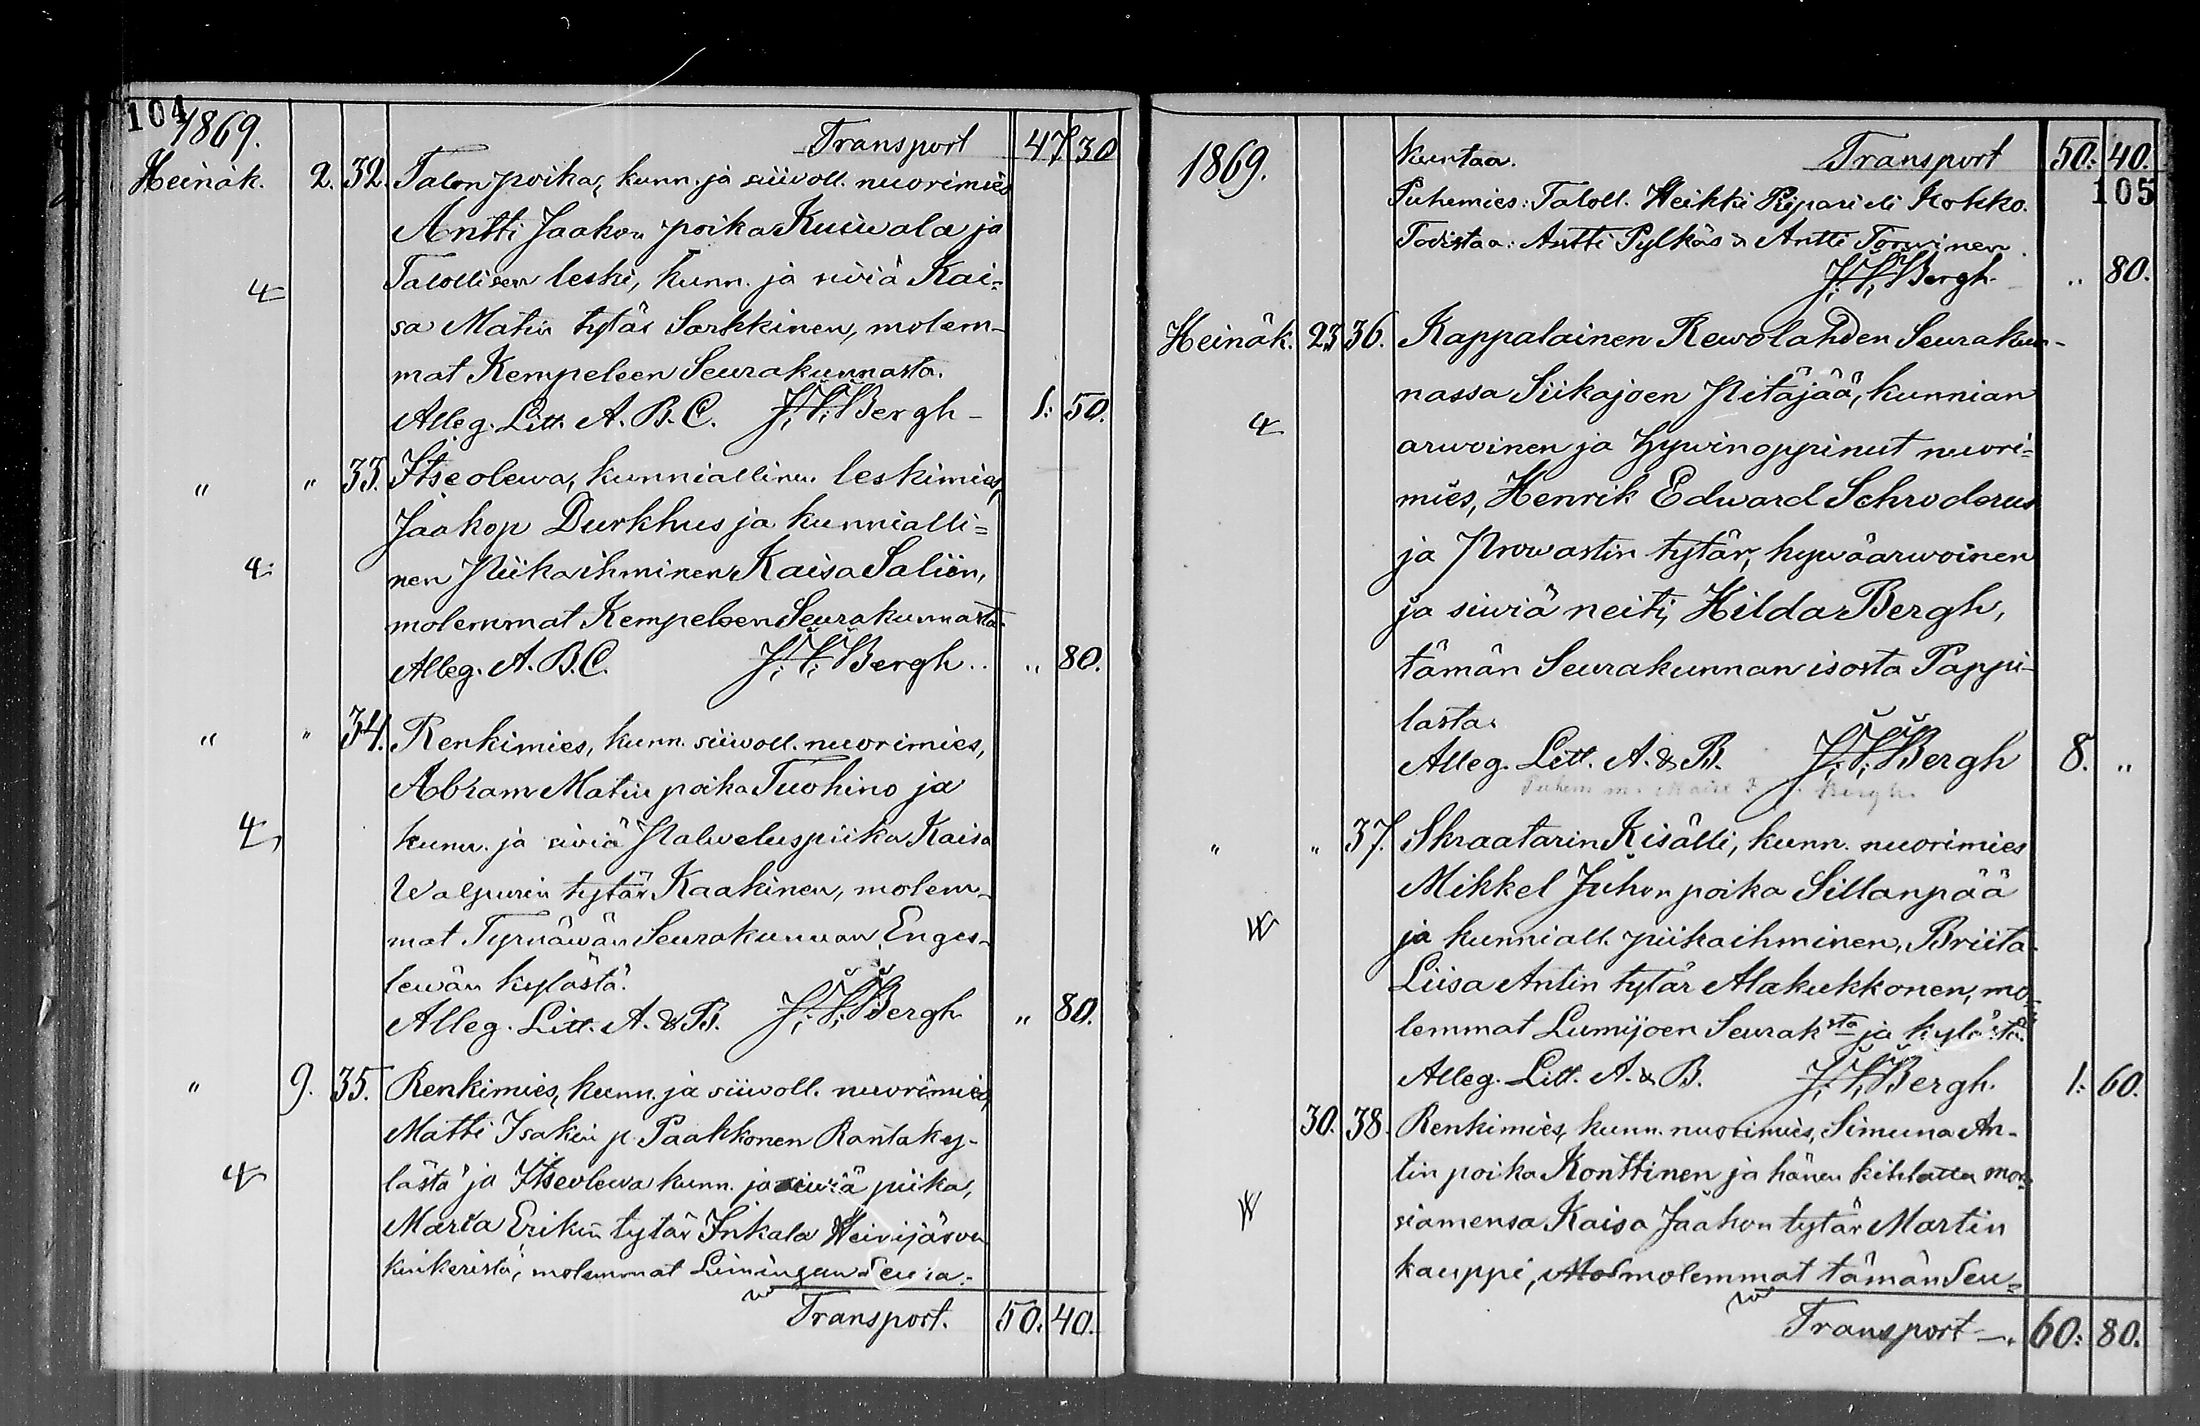 104
1869.
Transport 47 30
Heinäk. 2. 32. Talon poika, kunn. ja siivoll. nuorimies
Antti Jaakon poika Kuiwala ja
4 Talollisen leski, kunn. ja siviä Kai-
sa Matin tytär Sarkkinen, molem-
mat Kempeleen Seurakunnasta.
Alleg. Litt. A. B. C. J. V. Bergh - 1: 50.
" " 33. Itseolewa, kunniallinen leskimies,
Jaakop Durkhus ja kunnialli-
4: nen Piikaihminen Kaisa Saliin,
molemmat Kempeleen Seurakunnasta.
Alleg. A. B. C. J. V. Bergh .. " 80.
" " 34. Renkimies, kunn. siivoll. nuorimies,
Abram Matin poika Tuohino ja
4, kunn. ja siviä Palweluspiika Kaisa
Walpurin tytär Kaakinen, molem-
mat Tyrnäwän Seurakunnan Enges-
lewän kylästä.
Alleg. Litt. A. & B. J. V. Bergh " 80.
" 9. 35. Renkimies, kunn. ja siivoll. nuorimies,
Matti Isakin p. Paakkonen Rantaky-
4 lästä ja Itseolewa kunn. ja siwiä piika,
Maria Erikin tytär Inkala Hirvijärwen
kinkeristä, molemmat Limingan Seura-
Transport. 50. 40.
1869.
kuntaa. Transport 50: 40.
105
Puhemies: Taloll. Heikki Ripari eli Kokko.
Todistaa: Antti Pylkäs & Antti Torwinen.
J. V. Bergh " 80.
Heinäk. 23 36. Kappalainen Rewolahden Seurakun-
nassa Siikajoen Pitäjää, kunnian
4 arwoinen ja hywinoppinut nuori-
mies, Henrik Edward Schroderus
ja Prowastin tytär, hywäarwoinen
ja siwiä neiti, Hilda Bergh,
tämän Seurakunnan isosta Pappi-
lasta.
Alleg. Litt. A. & B. J. V. Bergh 8. "
" " 37. Skraatarin Kisälli, kunn. nuorimies
Mikkel Juhon poika Sillanpää
W ja kunniall. piikaihminen, Briita
Liisa Antin tytär Alakukkonen, mo-
lemmat Lumijoen Seurak:sta ja kylästä.
Alleg. Litt. A. & B. J. V. Bergh. 1: 60.
30. 38. Renkimies, kunn. nuorimies, Simuna An-
tin poika Konttinen ja hänen kihlattu mor-
W siamensa Kaisa Jaakon tytär Martin
kauppi, Mol molemmat tämän Seu-
Transport -. 60: 80.